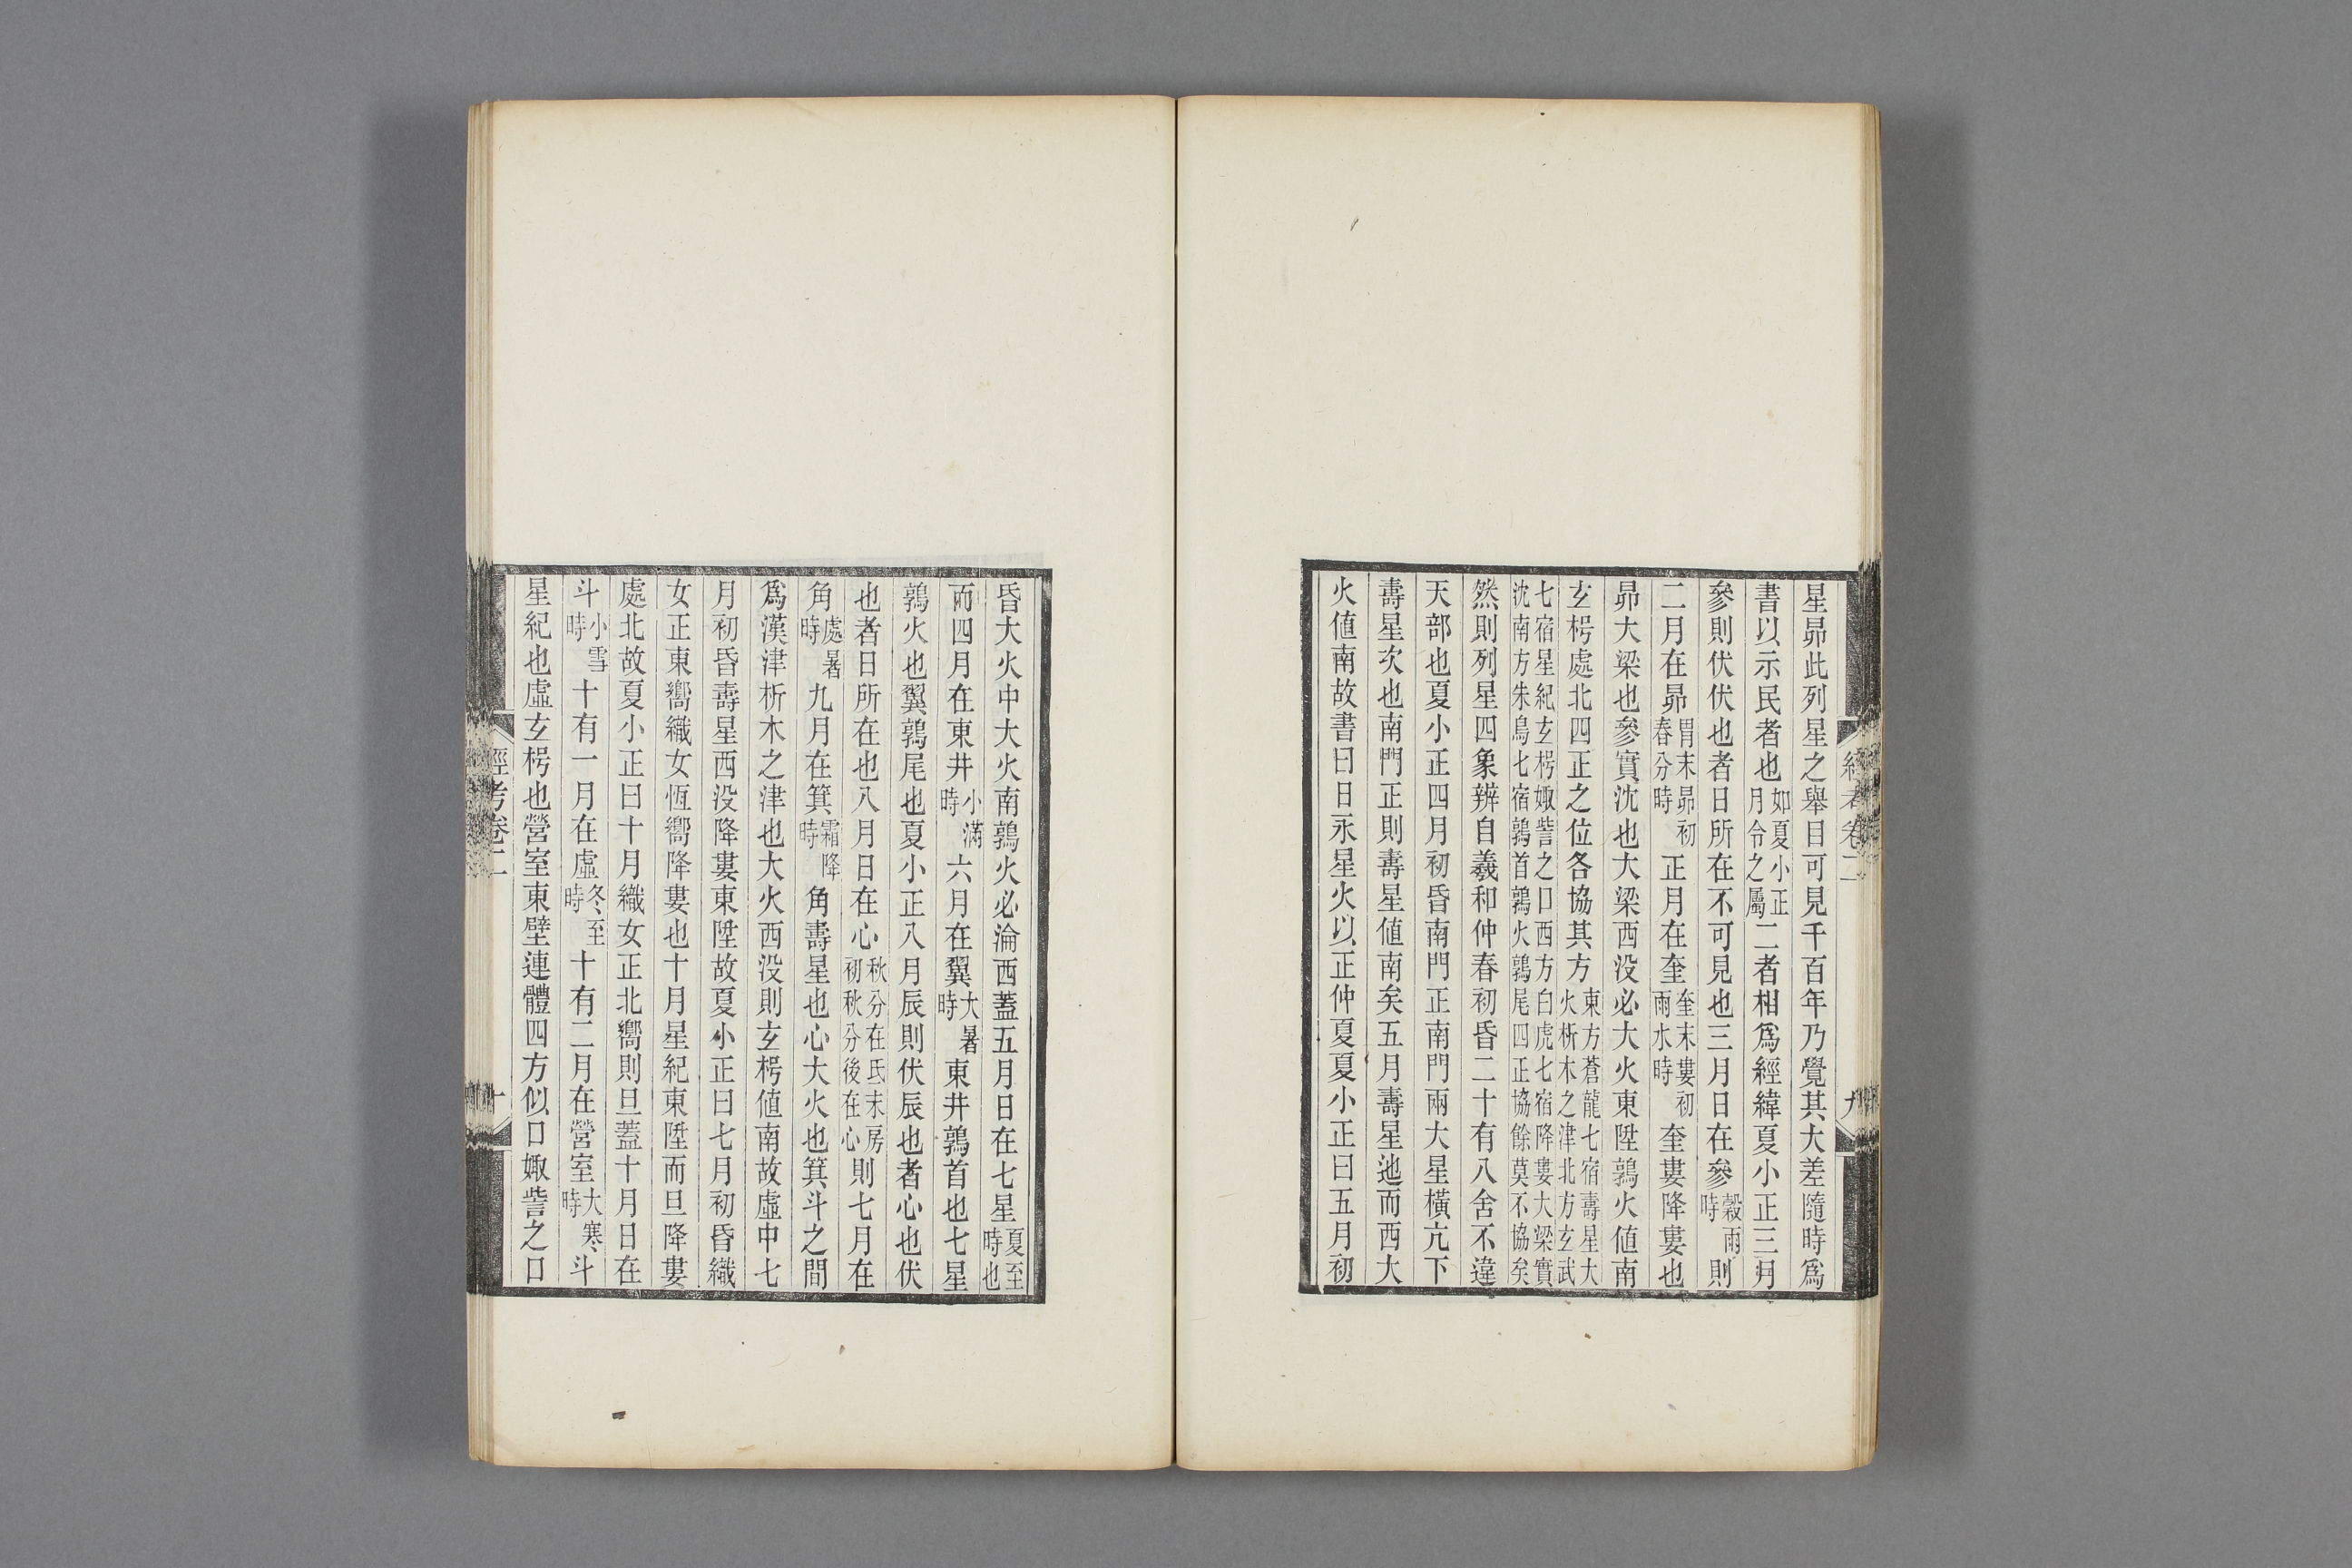 星昴此列星之舉目可見千百年乃覺其大差隨時爲
書以示民者也如夏小正月令之屬二者相爲經緯夏小正三月
參則伏伏也者日所在不可見也三月日在參穀雨時則
二月在昴胃末昴初春分時正月在奎奎末婁初雨水時奎婁降婁也
昴大梁也參實沈也大梁西没必大火東陞鶉火値南
玄枵處北四正之位各協其方東方蒼龍七宿壽星大火析木之津北方玄武
七宿星紀玄枵娵訾之口西方白虎七宿降婁大梁實沈南方朱鳥七宿鶉首鶉火鶉尾四正協餘莫不協矣
然則列星四象辨自羲和仲春初昏二十有八舍不違
天部也夏小正四月初昏南門正南門兩大星橫亢下
壽星次也南門正則壽星値南矣五月壽星迆而西大
火値南故書曰日永星火以正仲夏夏小正曰五月初
經考卷二
九
昏大火中大火南鶉火必淪西蓋五月日在七星夏至時也
而四月在東井小滿時六月在翼大暑時東井鶉首也七星
鶉火也翼鶉尾也夏小正八月辰則伏辰也者心也伏
也者日所在也八月日在心秋分在氐末房初秋分後在心則七月在
角處暑時九月在箕霜降時角壽星也心大火也箕斗之間
爲漢津析木之津也大火西没則玄枵値南故虛中七
月初昏壽星西没降婁東陞故夏小正曰七月初昏織
女正東嚮織女恆嚮降婁也十月星紀東陞而旦降婁
處北故夏小正曰十月織女正北嚮則旦蓋十月日在
斗小雪時十有一月在虛冬至時十有二月在營室大寒時斗
星紀也虛玄枵也營室東壁連體四方似口娵訾之口
經考卷二
十